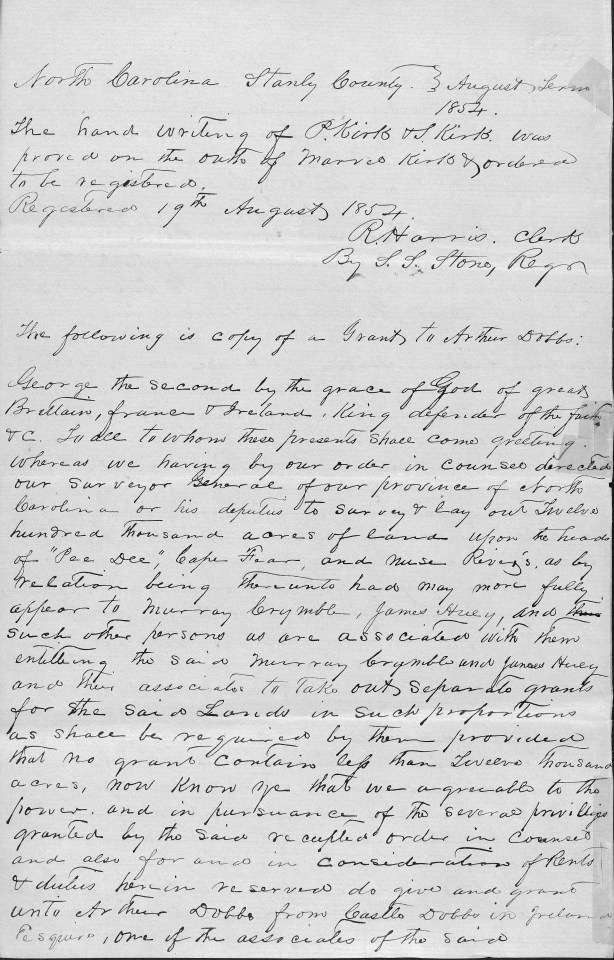 North Carolina Stanly County. } August Term
1854.
The hand writing of P. Kirk & S. Kirk. was
proved on the oath of Kirk & ordered
to be registered.
Registered 19th August 1854.
R. Harris. Clerk
By S. S. Stone, Regr
The following is copy of a Grant to Arthur Dobbs:
George the second by the grace of God of great
Brittain, france & Ireland, King defender of the faith
&C. To all to whom these presents shall come greeting.
Whereas we having by our order in counsel directed
our Surveyor General of our province of North
Carolina or his deputies to survey & lay out Twelve
hundred thousand acres of land upon the heads
of "Pee Dee", Cape Fear, and Nuse Rivers, as by
relation being thereunto had may more fully
appear to Murray Crymble, James Huey, and
such other persons as are associated with them
entitling the said Murray Crymble and James Huey
and their associates to take out separate grants
for the said Lands in such proportions
as shall be required by them provided
that no grant contain less than Twelve thousand
acres, now know ye that we agreeable to the
power. and in pursuance of the several privileges
granted by the said recited order in counsel
and also for and in consideration of Rents
& duties herein reserved do give and grant
unto Arthur Dobbs from Castle Dobbs in Ireland
Esquire, one of the associates of the said